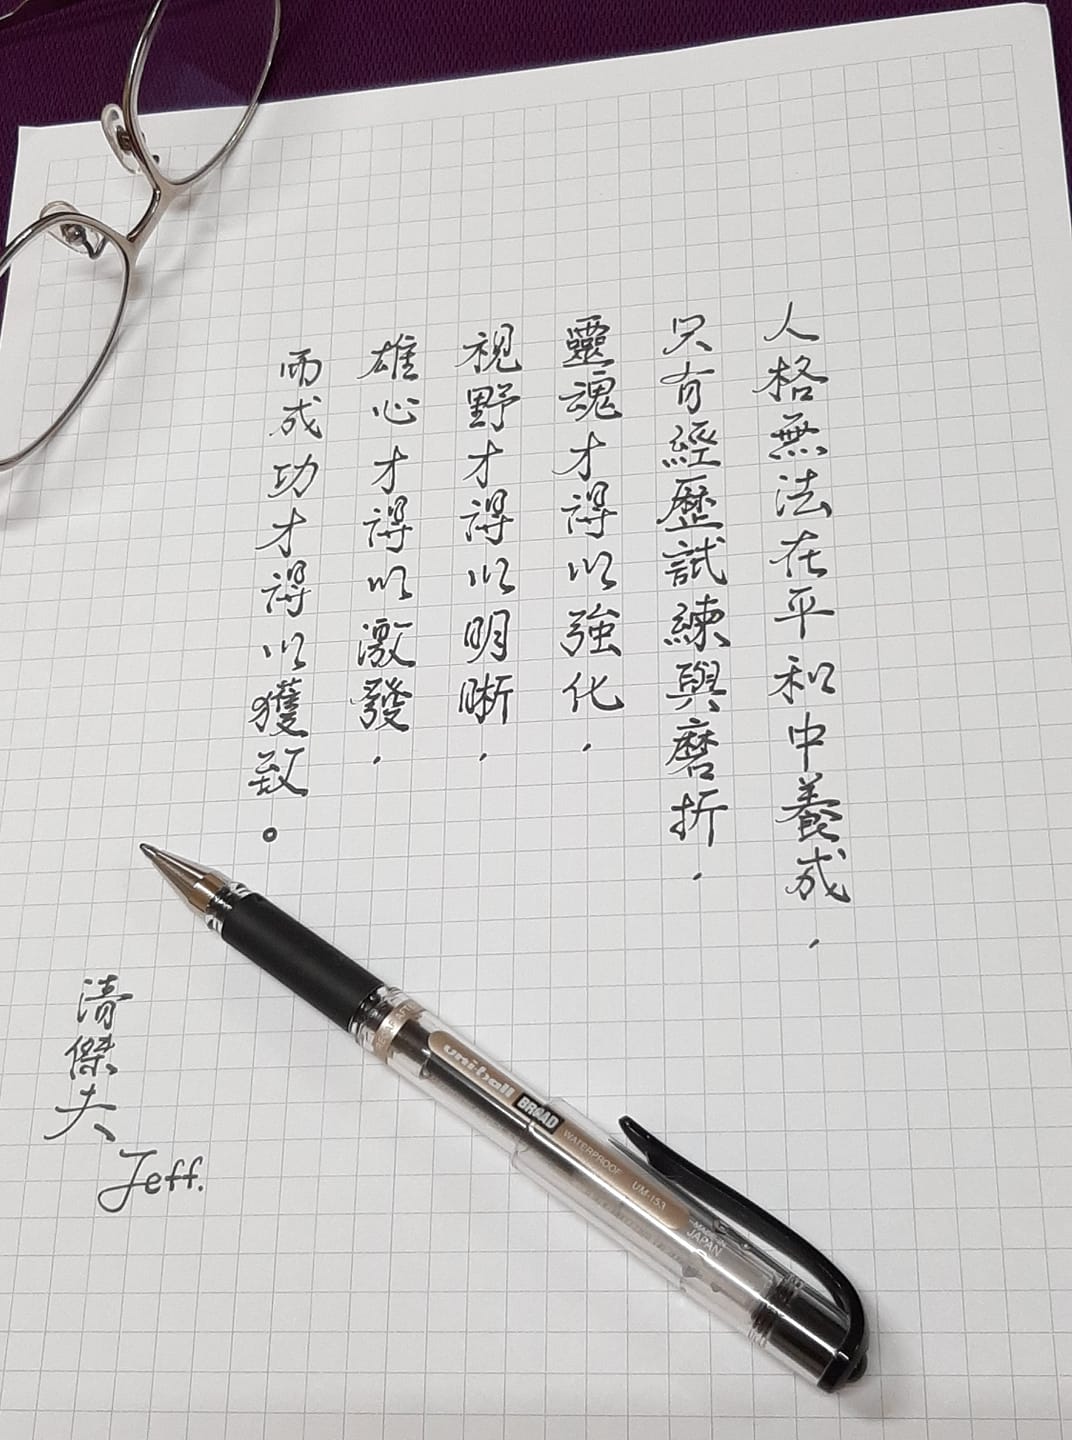 人格無法在平和中養成，
只有經歷試練與磨折，
靈魂才得以強化，
視野才得以明晰，
雄心才得以激發，
而成功才得以獲致。
清傑夫
Jeff.
uni-ball BROAD WATERPROOF UM-153
MADE IN
JAPAN